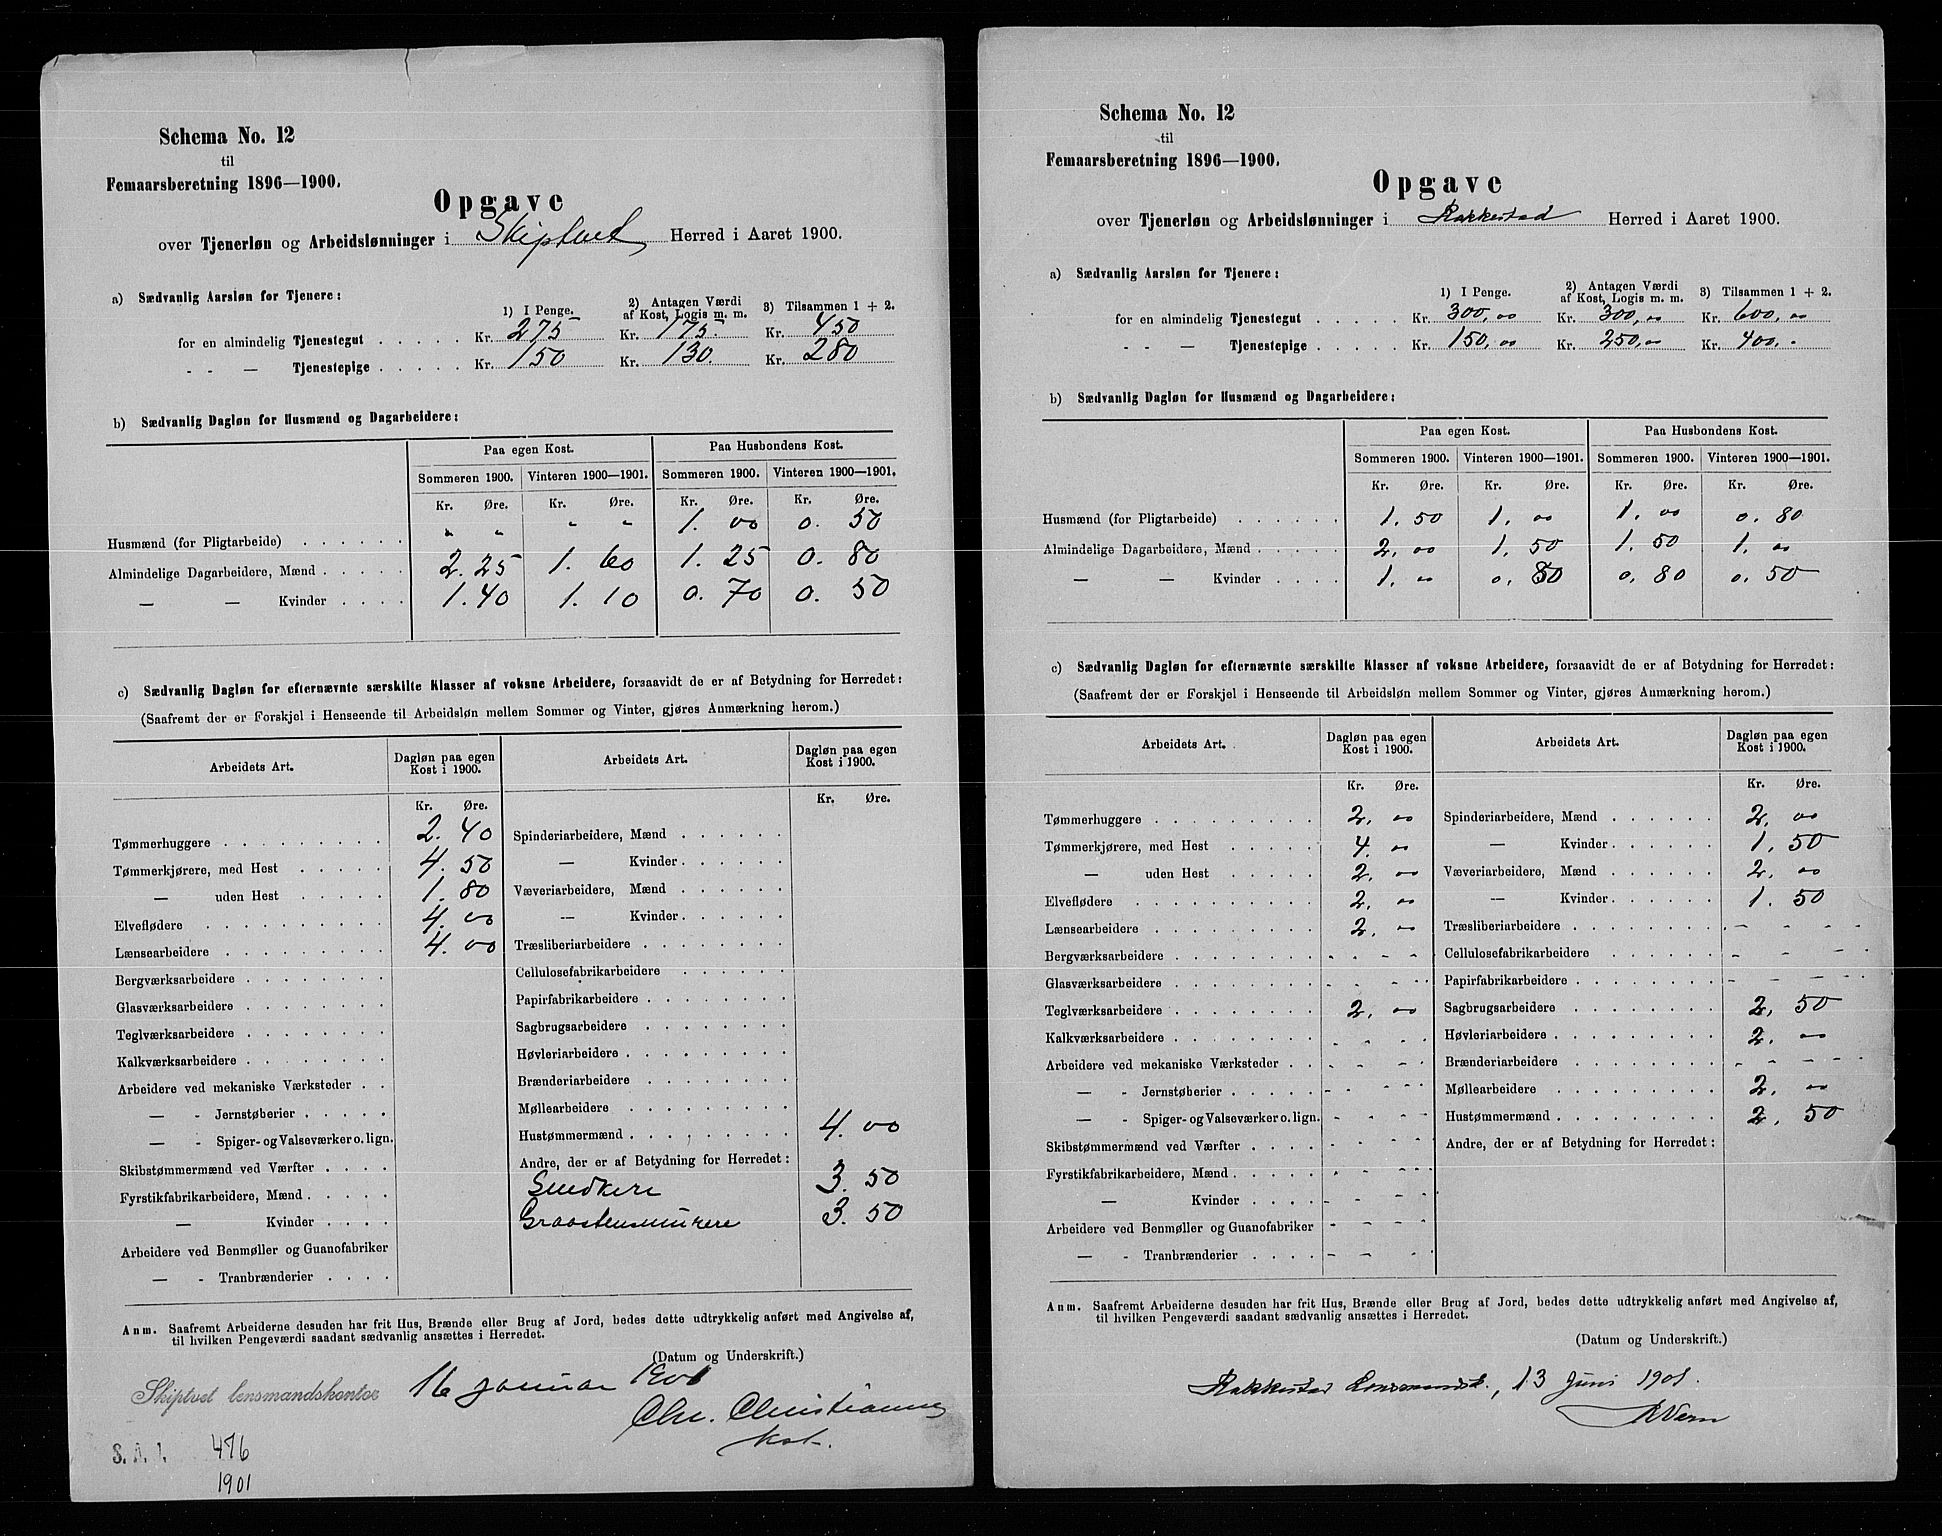 Schema No. 12
til
Femaarsberetning 1896—1900.
Opgave
over Tjenerløn og Arbeidslønninger i Skiptvet Herred i Aaret 1900.
a) Sædvanlig Aarsløn for Tjenere:
1) I Penge. 2) Antagen Værdi af Kost, Logis m. m. 3) Tilsammen 1 + 2.
for en almindelig Tjenestegut . . . . . Kr. 275 Kr. 175. Kr. 450
- - — Tjenestepige . . . . . Kr. 150 Kr. 130. Kr. 280
b) Sædvanlig Dagløn for Husmænd og Dagarbeidere:
Paa egen Kost. Paa Husbondens Kost.
Sommeren 1900. Vinteren 1900—1901. Sommeren 1900. Vinteren 1900—1901.
Kr. Øre. Kr. Øre. Kr. Øre. Kr. Øre.
Husmænd (for Pligtarbeide) . . . . . . " " " " 1. 00 0. 50
Almindelige Dagarbeidere, Mænd . . . . . 2. 25 1. 60 1. 25 0. 80
— — Kvinder . . . . 1. 40 1. 10 0. 70 0. 50
c) Sædvanlig Dagløn for efternævnte særskilte Klasser af voksne Arbeidere, forsaavidt de er af Betydning for Herredet:
(Saafremt der er Forskjel i Henseende til Arbeidsløn mellem Sommer og Vinter, gjøres Anmærkning herom.)
Arbeidets Art. Dagløn paa egen Kost i 1900. Arbeidets Art. Dagløn paa egen Kost i 1900.
Kr. Øre. Kr. Øre.
Tømmerhuggere . . . . . . . . . 2. 40 Spinderiarbeidere, Mænd . . . . . .
Tømmerkjørere, med Hest . . . . . 4. 50 — Kvinder . . . . . .
— uden Hest . . . . . 1. 80 Væveriarbeidere, Mænd . . . . . .
Elveflødere . . . . . . . . . . 4. 00 — Kvinder . . . . . .
Lænsearbeidere . . . . . . . . . 4. 00 Træsliberiarbeidere . . . . . . . .
Bergværksarbeidere . . . . . . . . Cellulosefabrikarbeidere . . . . . .
Glasværksarbeidere . . . . . . . . Papirfabrikarbeidere . . . . . . . .
Teglværksarbeidere . . . . . . . . Sagbrugsarbeidere . . . . . . . .
Kalkværksarbeidere . . . . . . . . Høvleriarbeidere . . . . . . . . .
Arbeidere ved mekaniske Værksteder . . Brænderiarbeidere . . . . . . . .
— - Jernstøberier . . . . . Møllearbeidere . . . . . . . . .
— - Spiger- og Valseværker o. lign. Hustømmermænd . . . . . . . . 4. 00
Skibstømmermænd ved Værfter . . . . Andre, der er af Betydning for Herredet:
Fyrstikfabrikarbeidere, Mænd . . . . . Snedkere 3. 50
— Kvinder . . . . Graastensmurere 3. 50
Arbeidere ved Benmøller og Guanofabriker
— - Tranbrænderier . . . .
Anm. Saafremt Arbeiderne desuden har frit Hus, Brænde eller Brug af Jord, bedes dette udtrykkelig anført med Angivelse af,
til hvilken Pengeværdi saadant sædvanlig ansættes i Herredet.
(Datum og Underskrift.)
Skiptvet lensmandskontor 16 januar 1901
Chr. Christiansen
kst.
S. A. I. 476
1901
Schema No. 12
til
Femaarsberetning 1896—1900.
Opgave
over Tjenerløn og Arbeidslønninger i Rakkestad Herred i Aaret 1900.
a) Sædvanlig Aarsløn for Tjenere:
1) I Penge. 2) Antagen Værdi af Kost, Logis m. m. 3) Tilsammen 1 + 2.
for en almindelig Tjenestegut . . . . . Kr. 300,00 Kr. 300,00 Kr. 600,00
- - — Tjenestepige . . . . . Kr. 150,00 Kr. 250,00 Kr. 400,-
b) Sædvanlig Dagløn for Husmænd og Dagarbeidere:
Paa egen Kost. Paa Husbondens Kost.
Sommeren 1900. Vinteren 1900—1901. Sommeren 1900. Vinteren 1900—1901.
Kr. Øre. Kr. Øre. Kr. Øre. Kr. Øre.
Husmænd (for Pligtarbeide) . . . . . . 1. 50 1. 00 1. 00 0. 80
Almindelige Dagarbeidere, Mænd . . . . . 2. 00 1. 50 1. 50 1. 00
— — Kvinder . . . . 1. 00 0. 80 0. 80 0. 50
c) Sædvanlig Dagløn for efternævnte særskilte Klasser af voksne Arbeidere, forsaavidt de er af Betydning for Herredet:
(Saafremt der er Forskjel i Henseende til Arbeidsløn mellem Sommer og Vinter, gjøres Anmærkning herom.)
Arbeidets Art. Dagløn paa egen Kost i 1900. Arbeidets Art. Dagløn paa egen Kost i 1900.
Kr. Øre. Kr. Øre.
Tømmerhuggere . . . . . . . . . 2. 00 Spinderiarbeidere, Mænd . . . . . . 2. 00
Tømmerkjørere, med Hest . . . . . 4. 00 — Kvinder . . . . . . 1. 50
— uden Hest . . . . . 2. 00 Væveriarbeidere, Mænd . . . . . . 2. 00
Elveflødere . . . . . . . . . . 2. 00 — Kvinder . . . . . . 1. 50
Lænsearbeidere . . . . . . . . . 2. 00 Træsliberiarbeidere . . . . . . . . - - - -
Bergværksarbeidere . . . . . . . . - - - - Cellulosefabrikarbeidere . . . . . . - - - -
Glasværksarbeidere . . . . . . . . - - - - Papirfabrikarbeidere . . . . . . . . - - - -
Teglværksarbeidere . . . . . . . . 2. 00 Sagbrugsarbeidere . . . . . . . . 2. 50
Kalkværksarbeidere . . . . . . . . - - - - Høvleriarbeidere . . . . . . . . . 2. 00
Arbeidere ved mekaniske Værksteder . . - - - - Brænderiarbeidere . . . . . . . . - - - -
— - Jernstøberier . . . . . - - - - Møllearbeidere . . . . . . . . . 2. 00
— - Spiger- og Valseværker o. lign. - - - - Hustømmermænd . . . . . . . . 2. 50
Skibstømmermænd ved Værfter . . . . - - - - Andre, der er af Betydning for Herredet:
Fyrstikfabrikarbeidere, Mænd . . . . . - - - -
— Kvinder . . . . - - - -
Arbeidere ved Benmøller og Guanofabriker - - - -
— - Tranbrænderier . . . . - - - -
Anm. Saafremt Arbeiderne desuden har frit Hus, Brænde eller Brug af Jord, bedes dette udtrykkelig anført med Angivelse af,
til hvilken Pengeværdi saadant sædvanlig ansættes i Herredet.
(Datum og Underskrift.)
Rakkestad Lensmandsk., 13 Juni 1901.